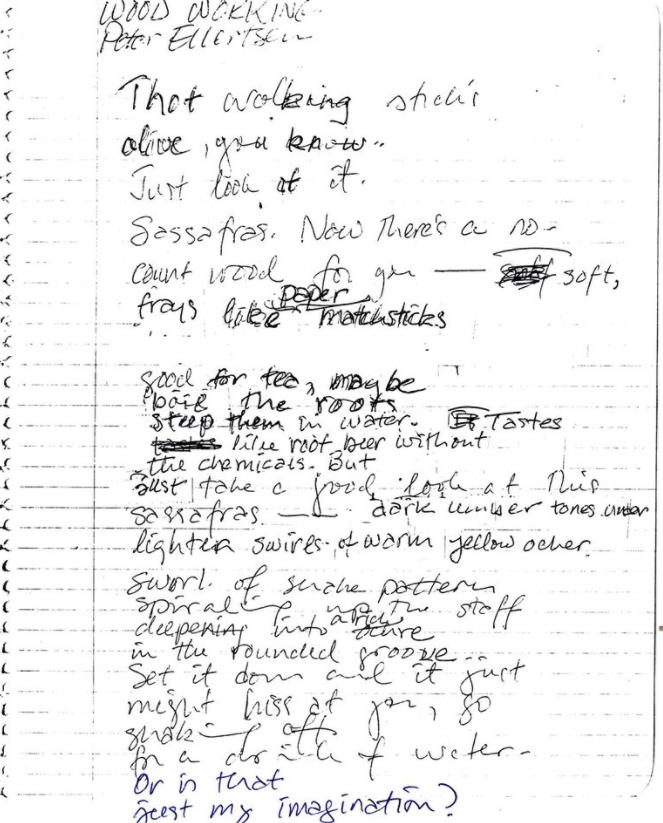 WOOD WORKING
Peter Ellertsen
That walking stick's
alive, you know..
Just look at it.
Sassafras. Now there's a no-
count wood for you — soft,
paper
frays like matchsticks
good for tea, maybe
boil the roots
steep them in water. It Tastes
tastes like root beer without
the chemicals. But
just take a good look at this
sassafras — dark umber tones under
lighter swirls of warm yellow ocher.
Swirl of snake pattern
spiraling up the staff
deepening into
in the rounded groove
Set it down and it just
might hiss at you, go
snaking off
for a drink of water.
Or is that
just my imagination?